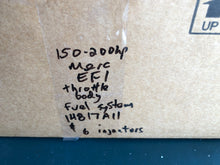 150-200hp
Merc
EFI
throttle
body
Fuel system
14817A11
& 6 injectors
UP